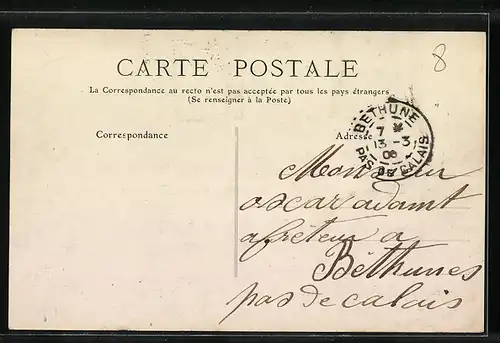 8
CARTE POSTALE
La Correspondance au recto n'est pas acceptée par tous les pays étrangers
(Se renseigner à la Poste)
Correspondance
Adresse
BETHUNE
7
13 - 3
06
PAS DE CALAIS
Monsieur
oscar adamt
afréteur a
Béthunes
pas de calais